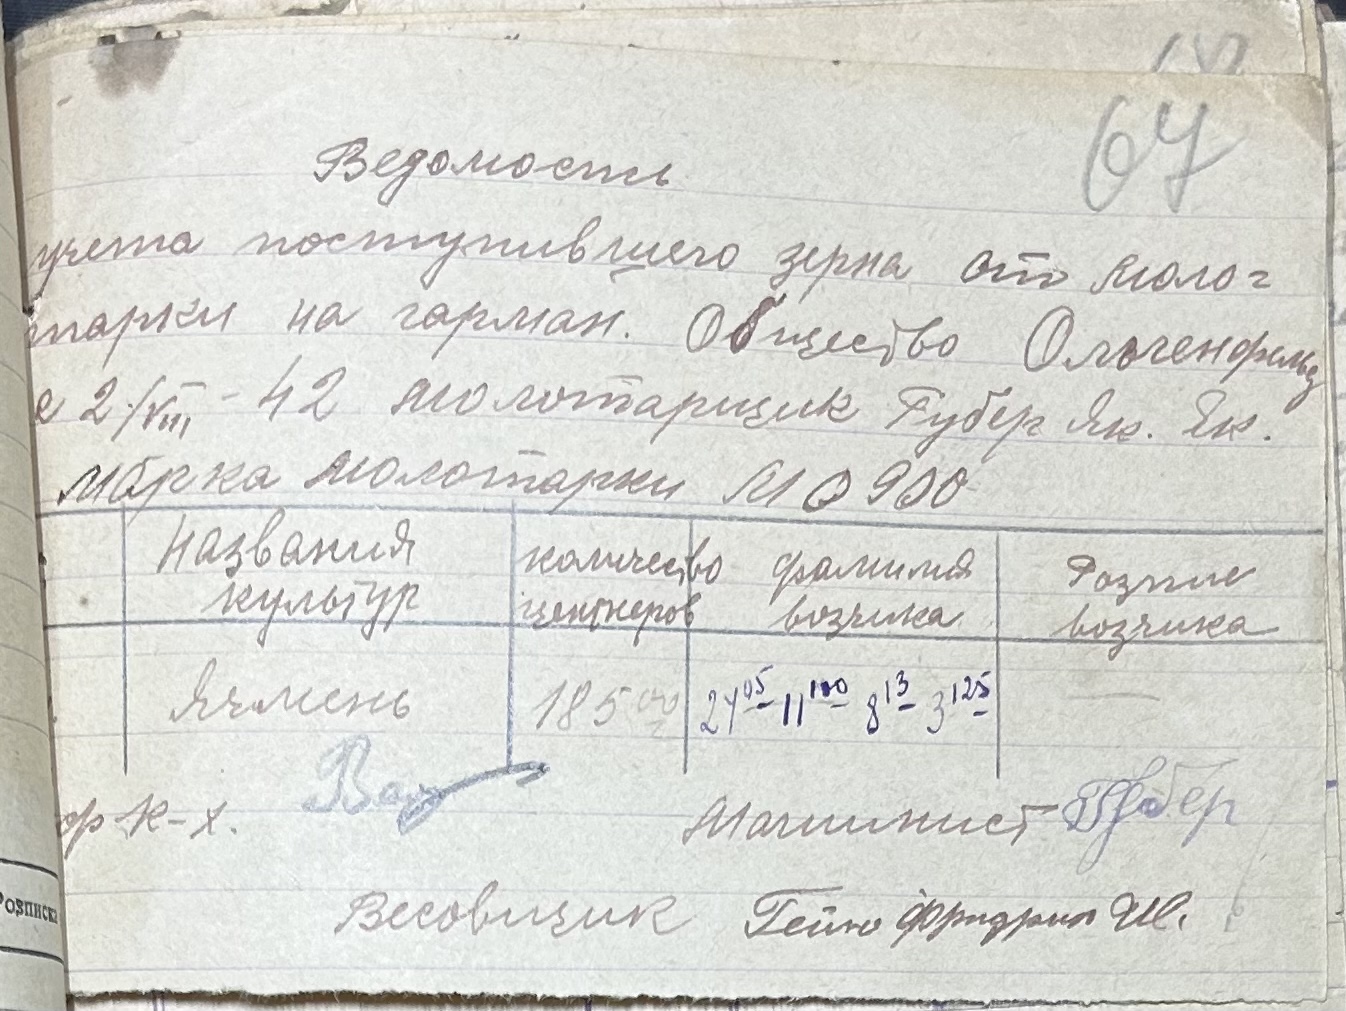 67
Ведомость
учета поступившего зерна от моло=
тарки на гарман. Общество Ольгенфельд
с 2/VIII-42 молотарщик Губер Як. Як.
Марка молотарки МО 900
Названия культур количество центнеров фамилия возчика Розпис возчика
Ячмень 185 00 24 05 11 100 8 13 3 125 —
к-х. Машинист Губер
Весовщик Гейн Фридрих Ив.
Розписка